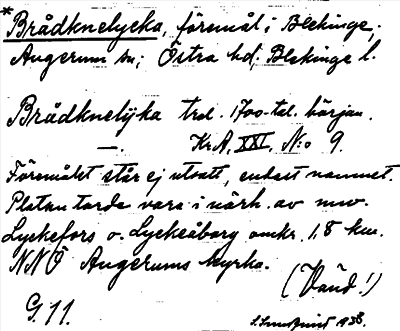 * Brådknelycka, föremål i Blekinge,
Augerum sn; Östra hd; Blekinge l.
Brådknelÿka trol. 1700-tal. början.
—. Kr.A. XXI, N:o 9.
Föremålet står ej utsatt, endast namnet.
Platsen torde vara i närh. av nuv.
Lyckefors o. Lyckeåborg omkr. 1,8 km.
NNÖ Augerums kyrka.
(Vänd!)
G. 11.
1938.